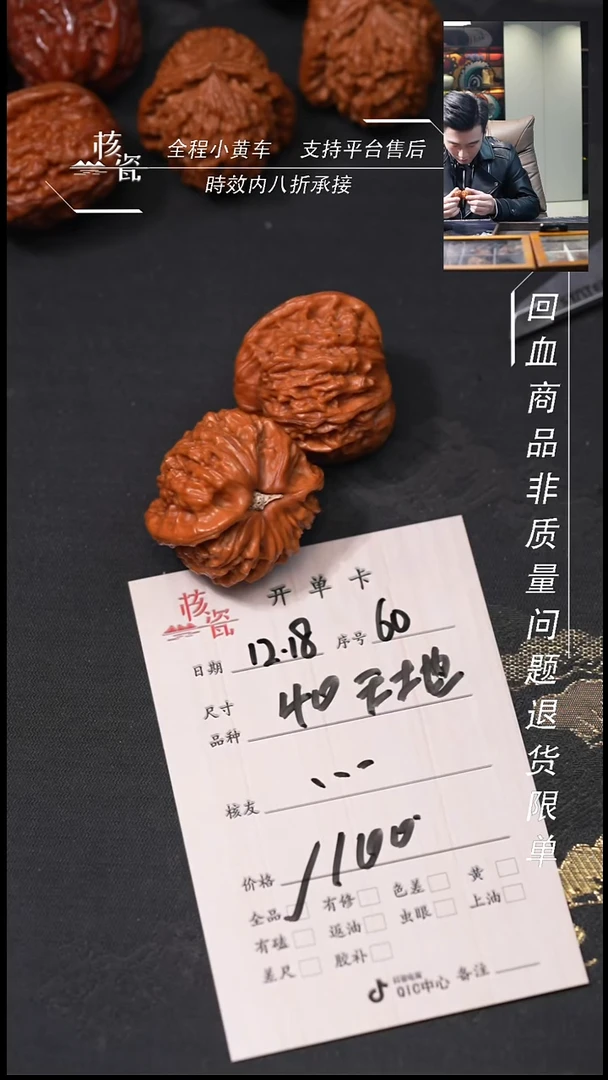 核瓷
全程小黄车 支持平台售后
時效内八折承接
回血商品非质量问题退货限单
核瓷
开单卡
日期 12.18 序号 60
尺寸
品种 40 天地
核友 ...
价格 1100
全品 有修 色差 黄
有磕 返油 虫眼 上油
差尺 胶补
QIC中心 备注